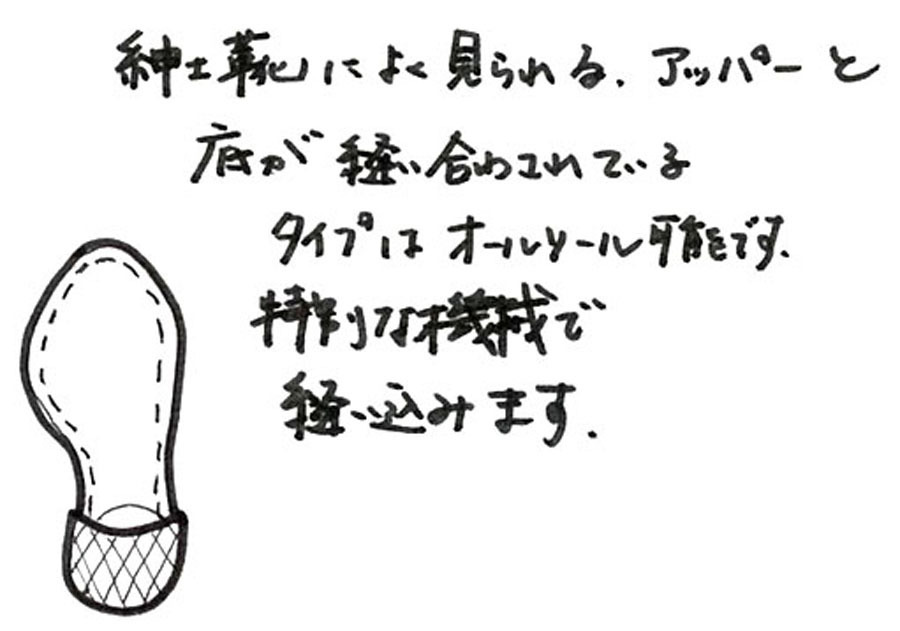 紳士靴によく見られる、アッパーと
底が縫い合わされている
タイプはオールソール可能です。
特別な機械で
縫い込みます.